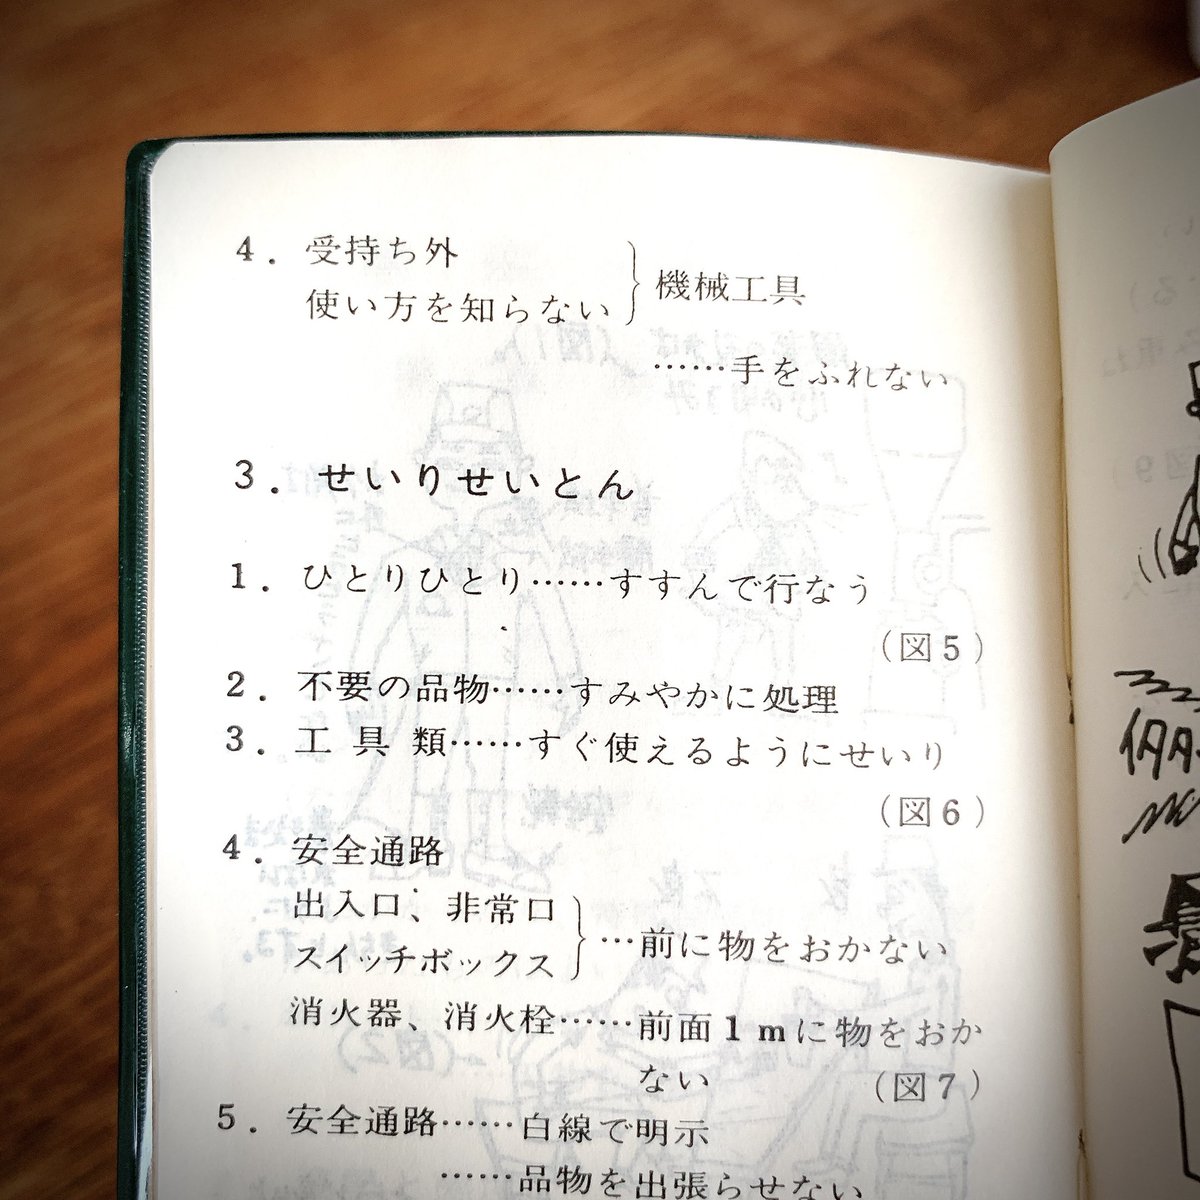 4. 受持ち外
使い方を知らない
機械工具
……手をふれない
3. せいりせいとん
1. ひとりひとり……すすんで行なう
(図5)
2. 不要の品物……すみやかに処理
3. 工具類……すぐ使えるようにせいり
(図6)
4. 安全通路
出入口、非常口
スイッチボックス
…前に物をおかない
消火器、消火栓……前面1mに物をおか
ない (図7)
5. 安全通路……白線で明示
……品物を出張らせない